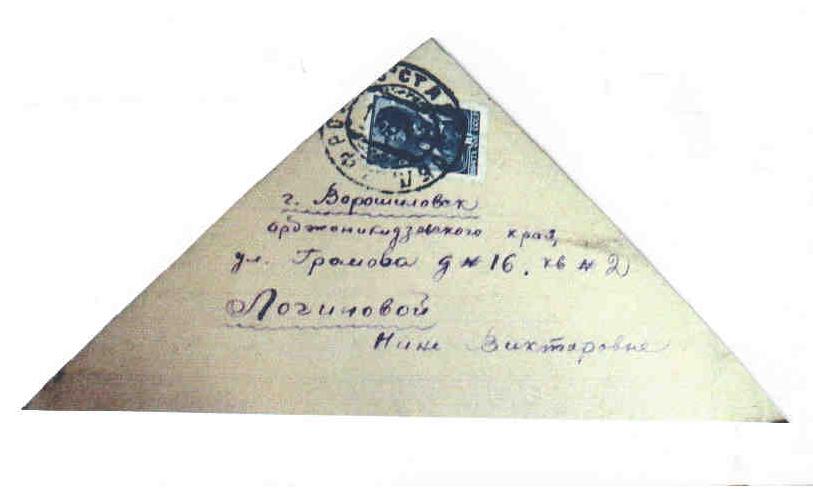 г. Ворошиловск
орджоникидзевского края,
ул. Громова д № 16, кв № 2
Логиновой
Нине Викторовне